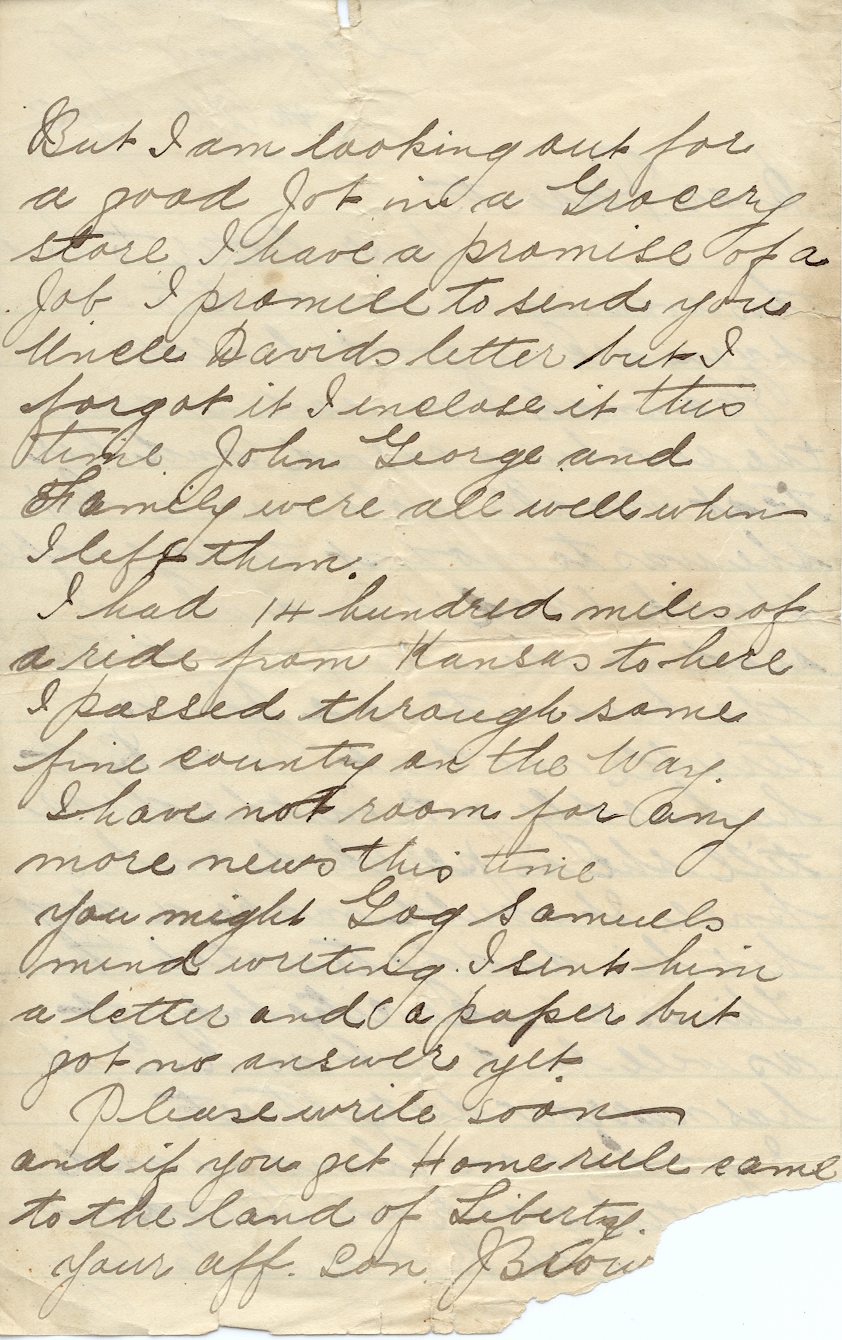 But I am looking out for
a good Job in a Grocery
store I have a promise of a
Job I promise to send you
Uncle Davids letter but I
forgot it I inclose it this
time John George and
Family were all well when
I left them.
I had 14 hundred miles of
a ride from Kansas to here
I passed through some
fine country on the Way.
I have not room for any
more news this time
you might Gog Samuels
mind writing. I sent him
a letter and a paper but
got no answer yet
Please write soon
and if you get Home rule come
to the land of Liberty.
your aff. son